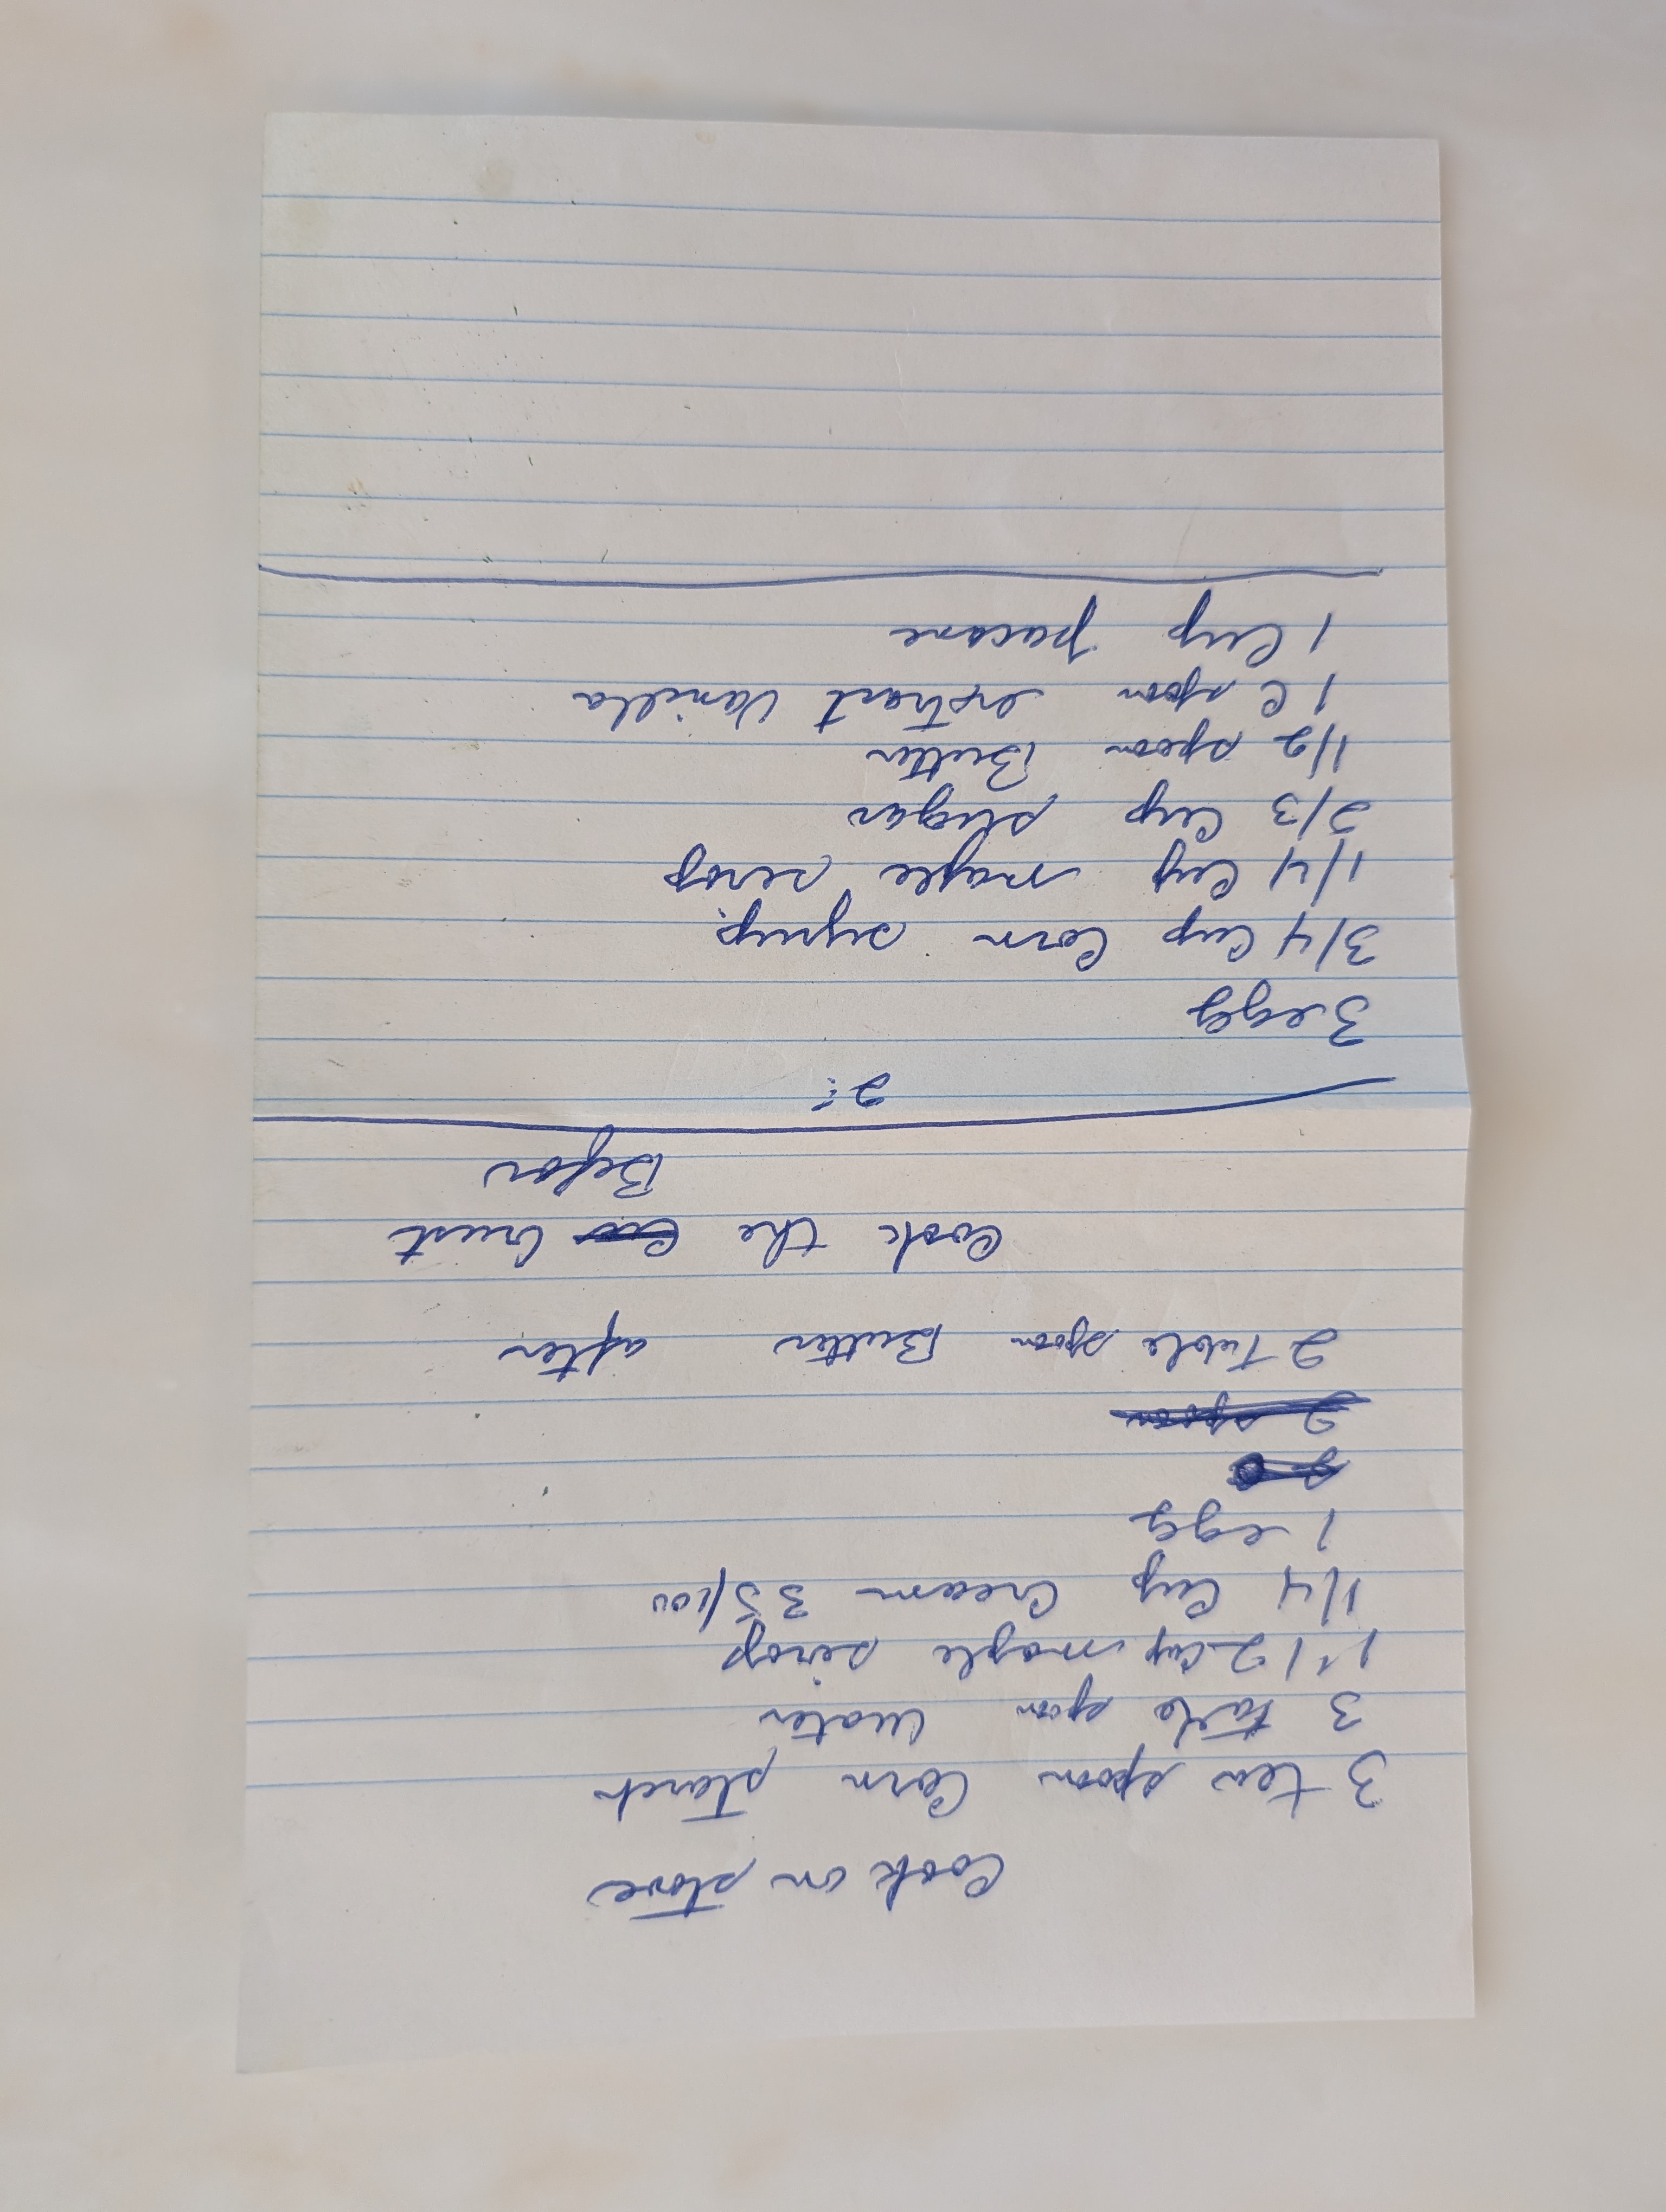 Cook on stove
3 tea spoon Corn starch
3 table spoon Water
1 1/2 cup maple sirop
1/4 Cup Cream 35/100
1 egg
2 spoon
2 Table spoon Butter after
Cook the Crust
Befor
2:
3 egg
3/4 Cup Corn syrup.
1/4 Cup maple sirop
2/3 Cup sugar
1/2 spoon Butter
1 C spoon extract Vanilla
1 Cup pacane